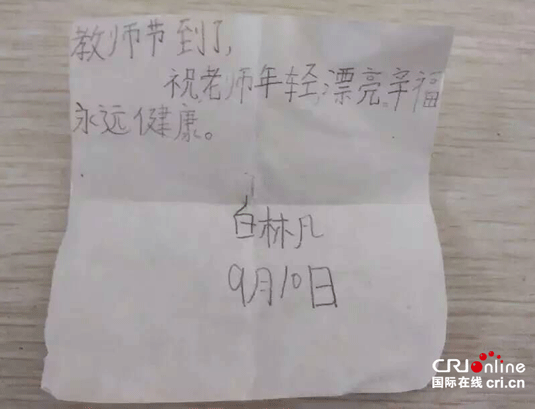 教师节到了,
祝老师年轻,漂亮.辛福
永远健康。
白林凡
9月10日
CRI online
国际在线 cri.cn